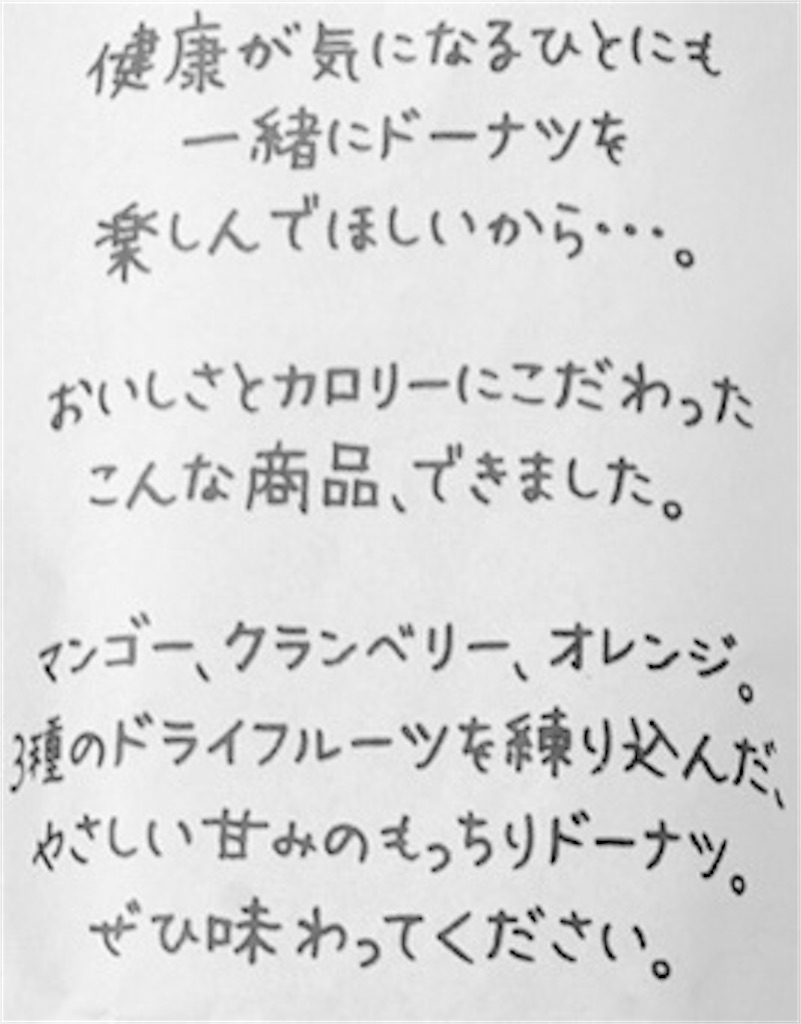 健康が気になるひとにも
一緒にドーナツを
楽しんでほしいから・・・。
おいしさとカロリーにこだわった
こんな商品、できました。
マンゴー、クランベリー、オレンジ。
3種のドライフルーツを練り込んだ、
やさしい甘みのもっちりドーナツ。
ぜひ味わってください。